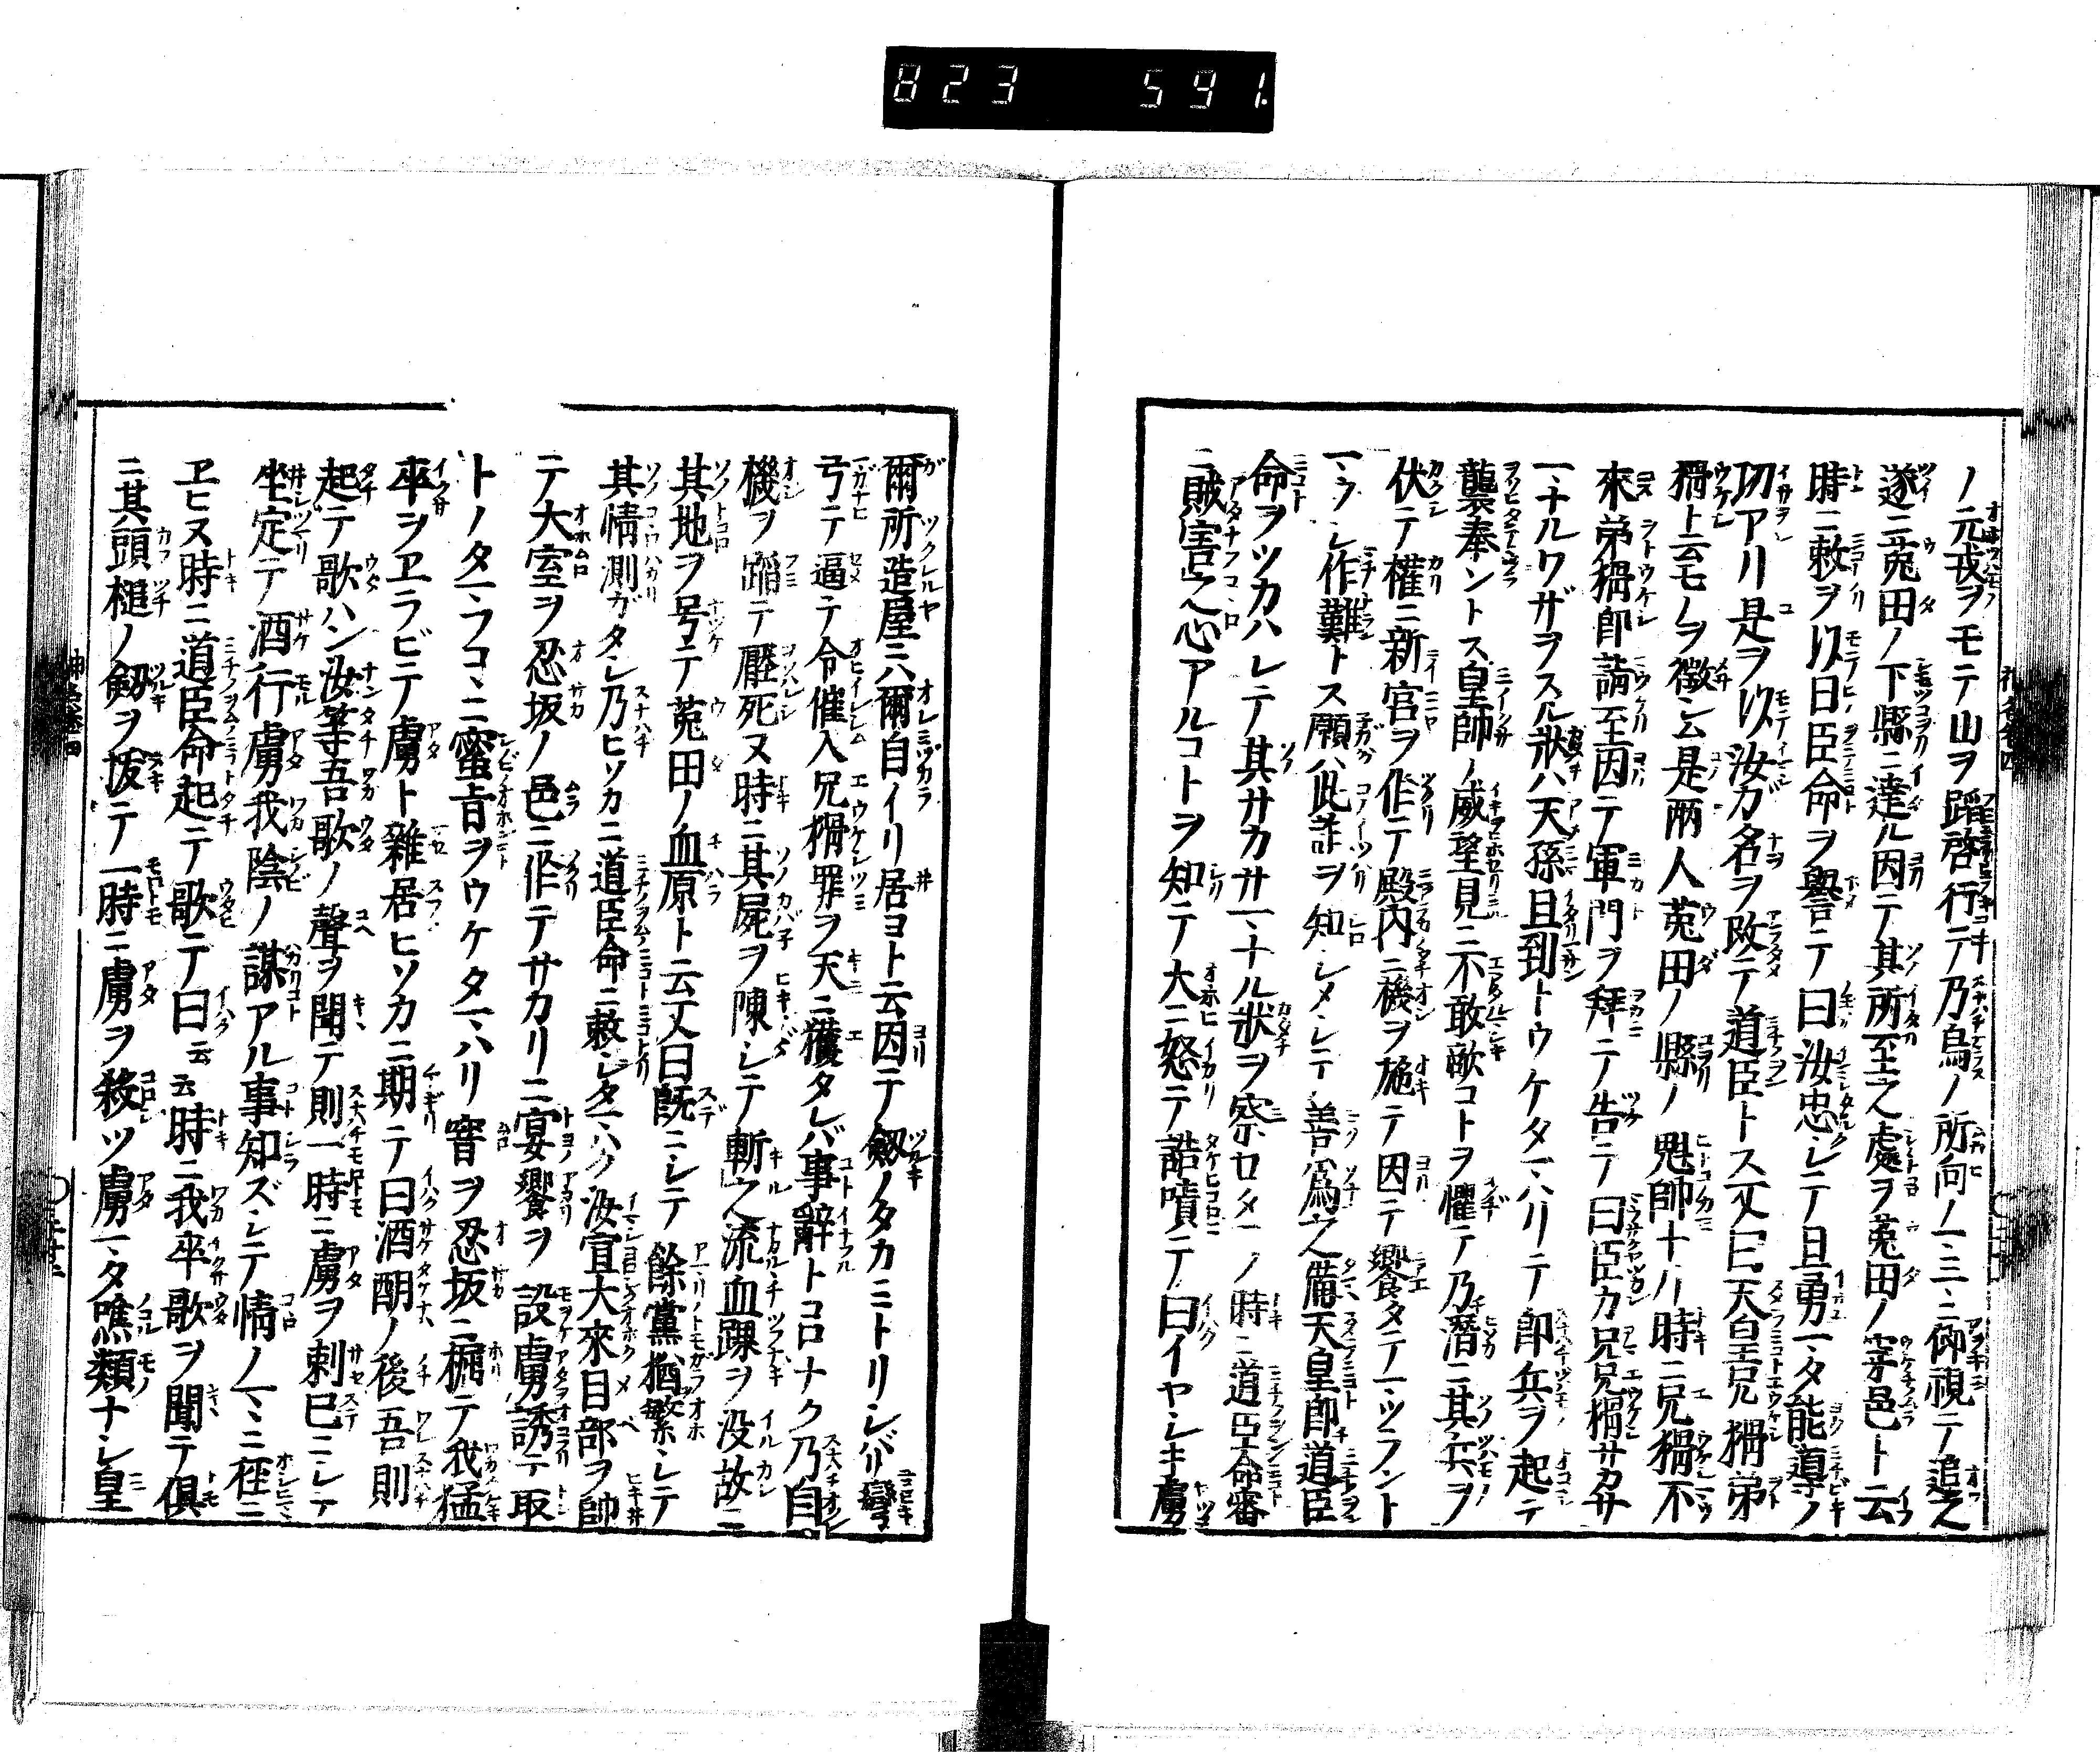 823 591.
ノ元戎ヲモテ山ヲ蹈啓行テ乃烏ノ所向ノマヽニ仰視テ追之
遂ニ菟田ノ下縣ニ達ル因テ其所至之處ヲ菟田ノ穿邑ト云
時ニ敕ヲ以日臣命ヲ譽テノ曰汝忠シテ且勇マタ能導ノ
功アリ是ヲ以汝カ名ヲ改テ道臣トス又曰天皇兄猾弟
猾ト云モノヲ徴シム是兩人菟田ノ縣ノ魁帥ナリ時ニ兄猾不
來弟猾即請至因テ軍門ヲ拜テ告テ曰臣カ兄兄猾サカサ
マナルワザヲスル狀ハ天孫且到トウケタマハリテ即兵ヲ起テ
襲奉ントス皇師ノ威望見ニ不敢敵コトヲ懼テ乃潛ニ其兵ヲ
伏テ權ニ新宮ヲ作テ殿内ニ機ヲ施テ因テ饗タテマツラント
マウシ作難トス願ハ此詐ヲ知シメシテ善爲之備天皇即道臣
命ヲツカハシテ其サカサマナル狀ヲ察セタマフ時ニ道臣命審
ニ賊害之心アルコトヲ知テ大ニ怒テ誥嘖テ曰イヤシキ虜
爾所造屋ニハ爾自イリ居ヨト云因テ劔ノタカミトリシバリ彎
弓テ逼テ令催入兄猾罪ヲ天ニ獲タレバ事辭トコロナク乃自
機ヲ蹈テ壓死ヌ時ニ其屍ヲ陳シテ斬之流血踝ヲ没故ニ
其地ヲ号テ菟田ノ血原ト云又曰既ニシテ餘黨猶繁シテ
其情測ガタシ乃ヒソカニ道臣命ニ敕シタマハク汝宜大來目部ヲ帥
テ大室ヲ忍坂ノ邑ニ作テサカリニ宴饗ヲ設虜誘テ取
トノタマフコヽニ蜜旨ヲウケタマハリ窨ヲ忍坂ニ掘テ我猛
卒ヲヱラビテ虜ト雜居ヒソカニ期テ曰酒酣ノ後吾則
起テ歌ハン汝等吾歌ノ聲ヲ聞テ則一時ニ虜ヲ刺已ニシテ
坐定テ酒行虜我陰ノ謀アル事知ズシテ情ノマヽニ徑ニ
ヱヒヌ時ニ道臣命起テ歌テ曰云云時ニ我卒歌ヲ聞テ倶
ニ其頭槌ノ劔ヲ拔テ一時ニ虜ヲ殺ツ虜マタ噍類ナシ皇